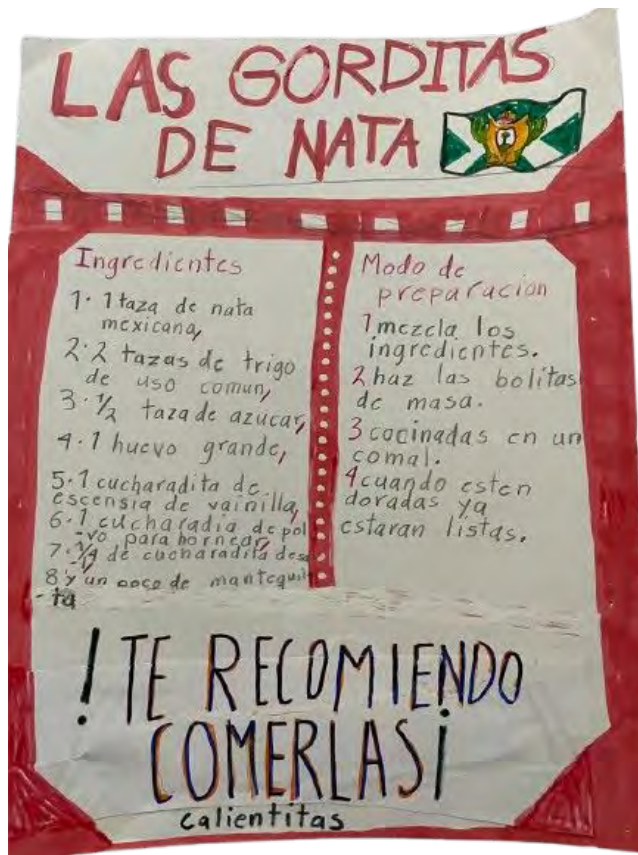 LAS GORDITAS
DE NATA
Ingredientes
1. 1 taza de nata
mexicana,
2. 2 tazas de trigo
de uso comun,
3. 1/2 taza de azucar,
4. 1 huevo grande,
5. 1 cucharadita de
escensia de vainilla,
6. 1 cucharadia de pol
-vo para hornear,
7. 1/4 de cucharadita desa
8 y un poco de mantequil
-la
Modo de
preparacion
1 mezcla los
ingredientes.
2 haz las bolitas
de masa.
3 cocinadas en un
comal.
4 cuando esten
doradas ya
estaran listas.
! TE RECOMIENDO
COMERLAS¡
calientitas